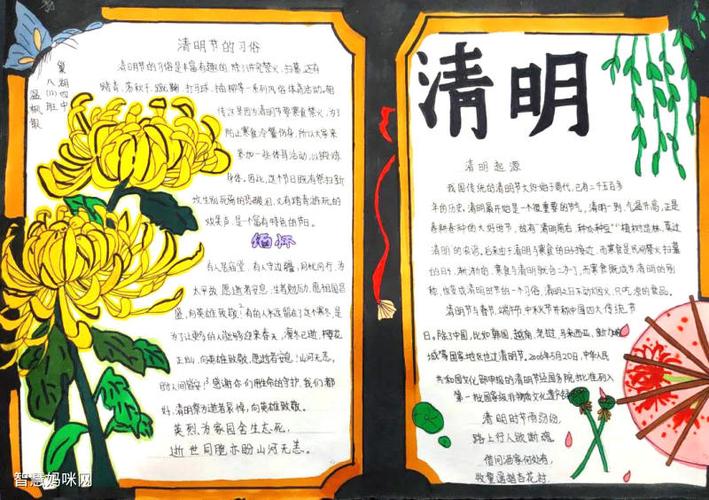 巢湖四中
八(1)班
温枫傲
清明节的习俗
清明节的习俗是丰富有趣的,除了讲究禁火、扫墓,还有
踏青、荡秋千、蹴鞠、打马球、插柳等一系列风俗体育活动。相
传这是因为清明节要寒食禁火,为了
防止寒食冷餐伤身,所以大家来
参加一些体育活动,以锻炼
身体。因此,这个节日既有祭扫新
坟生别死离的悲酸泪,又有踏青游玩的
欢笑声,是一个富有特色的节日。
缅怀
有人居庙堂,有人守边疆,同忧同行,为
太平故,愿逝者安息,生者勉励,愿祖国昌
盛,向英雄致敬!有的人永远留在了这个寒冬,是
为了让更多的人能够迎来春天,凛冬已逝,樱花
正灿,向英雄致敬,愿逝者安息!山河无恙,
的人间皆安!感谢你们用你的守护,我们都
好,清明祭为逝者哀悼,向英雄致敬。
英烈为家国舍生忘死,
逝世同胞亦盼山河无恙。
清明
清明起源
我国传统的清明节大约始于周代,已有二千五百多
年的历史。清明最开始是一个很重要的节气,清明一到,气温升高,正是
春耕春种的大好时节,故有"清明前后,种瓜种豆""植树造林,莫过
清明"的农谚。后来由于清明与寒食的日子接近,而寒食是民间禁火扫墓
的日子,渐渐的,寒食与清明就合二为一了,而寒食既成为清明的别
称,也变成清明时节的一个习俗,清明之日不动烟火,只吃凉的食品。
清明节与春节、端午节、中秋节并称中国四大传统节
日。除了中国,比如韩国、越南、老挝、马来西亚、新加
坡等国家地区也过清明节。2006年5月20日,中华人民
共和国文化部申报的清明节经国务院批准列入
第一批国家级非物质文化遗产
清明时节雨纷纷,
路上行人欲断魂。
借问酒家何处有,
牧童遥指杏花村。
智慧妈咪网